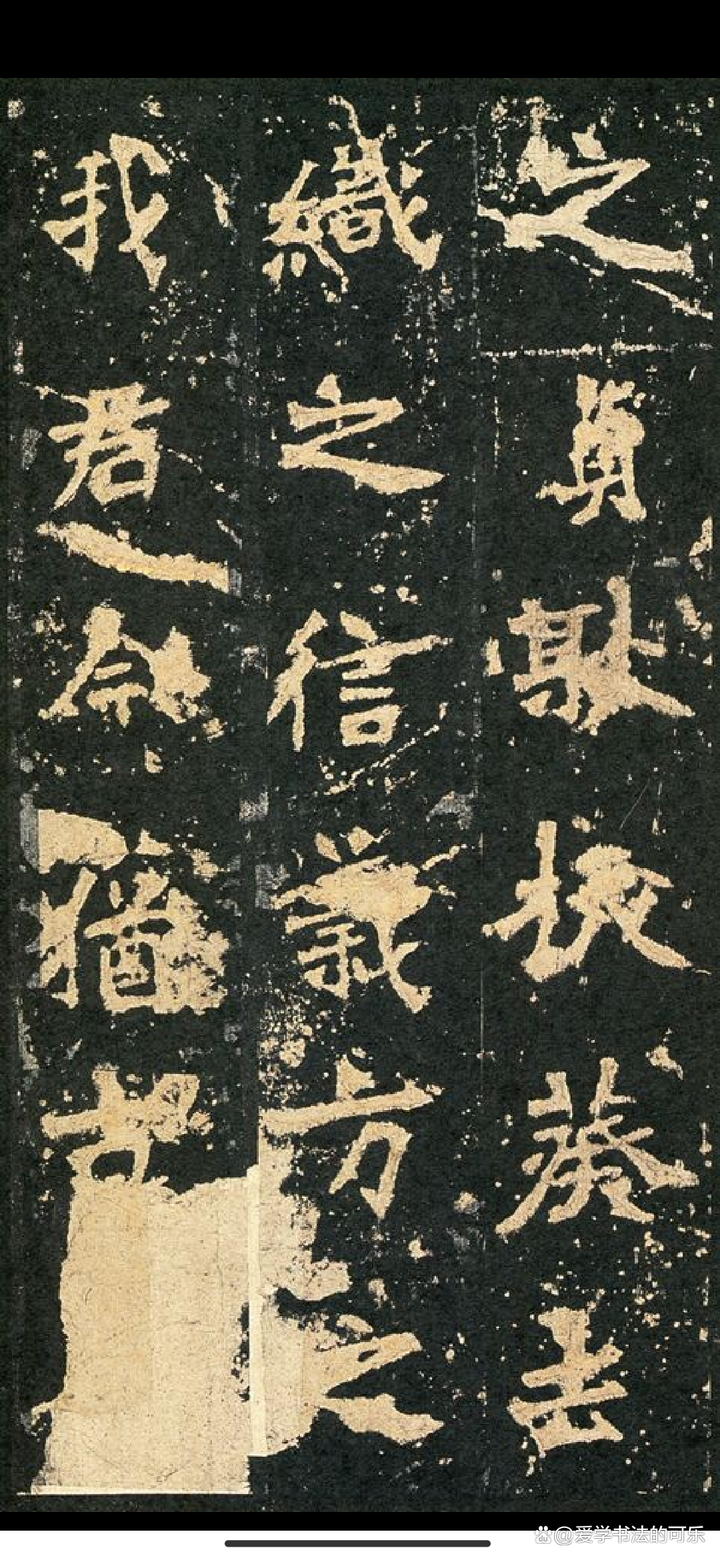 之貞耿拔葵去
織之信義方之
我君猶
@爱学书法的可乐